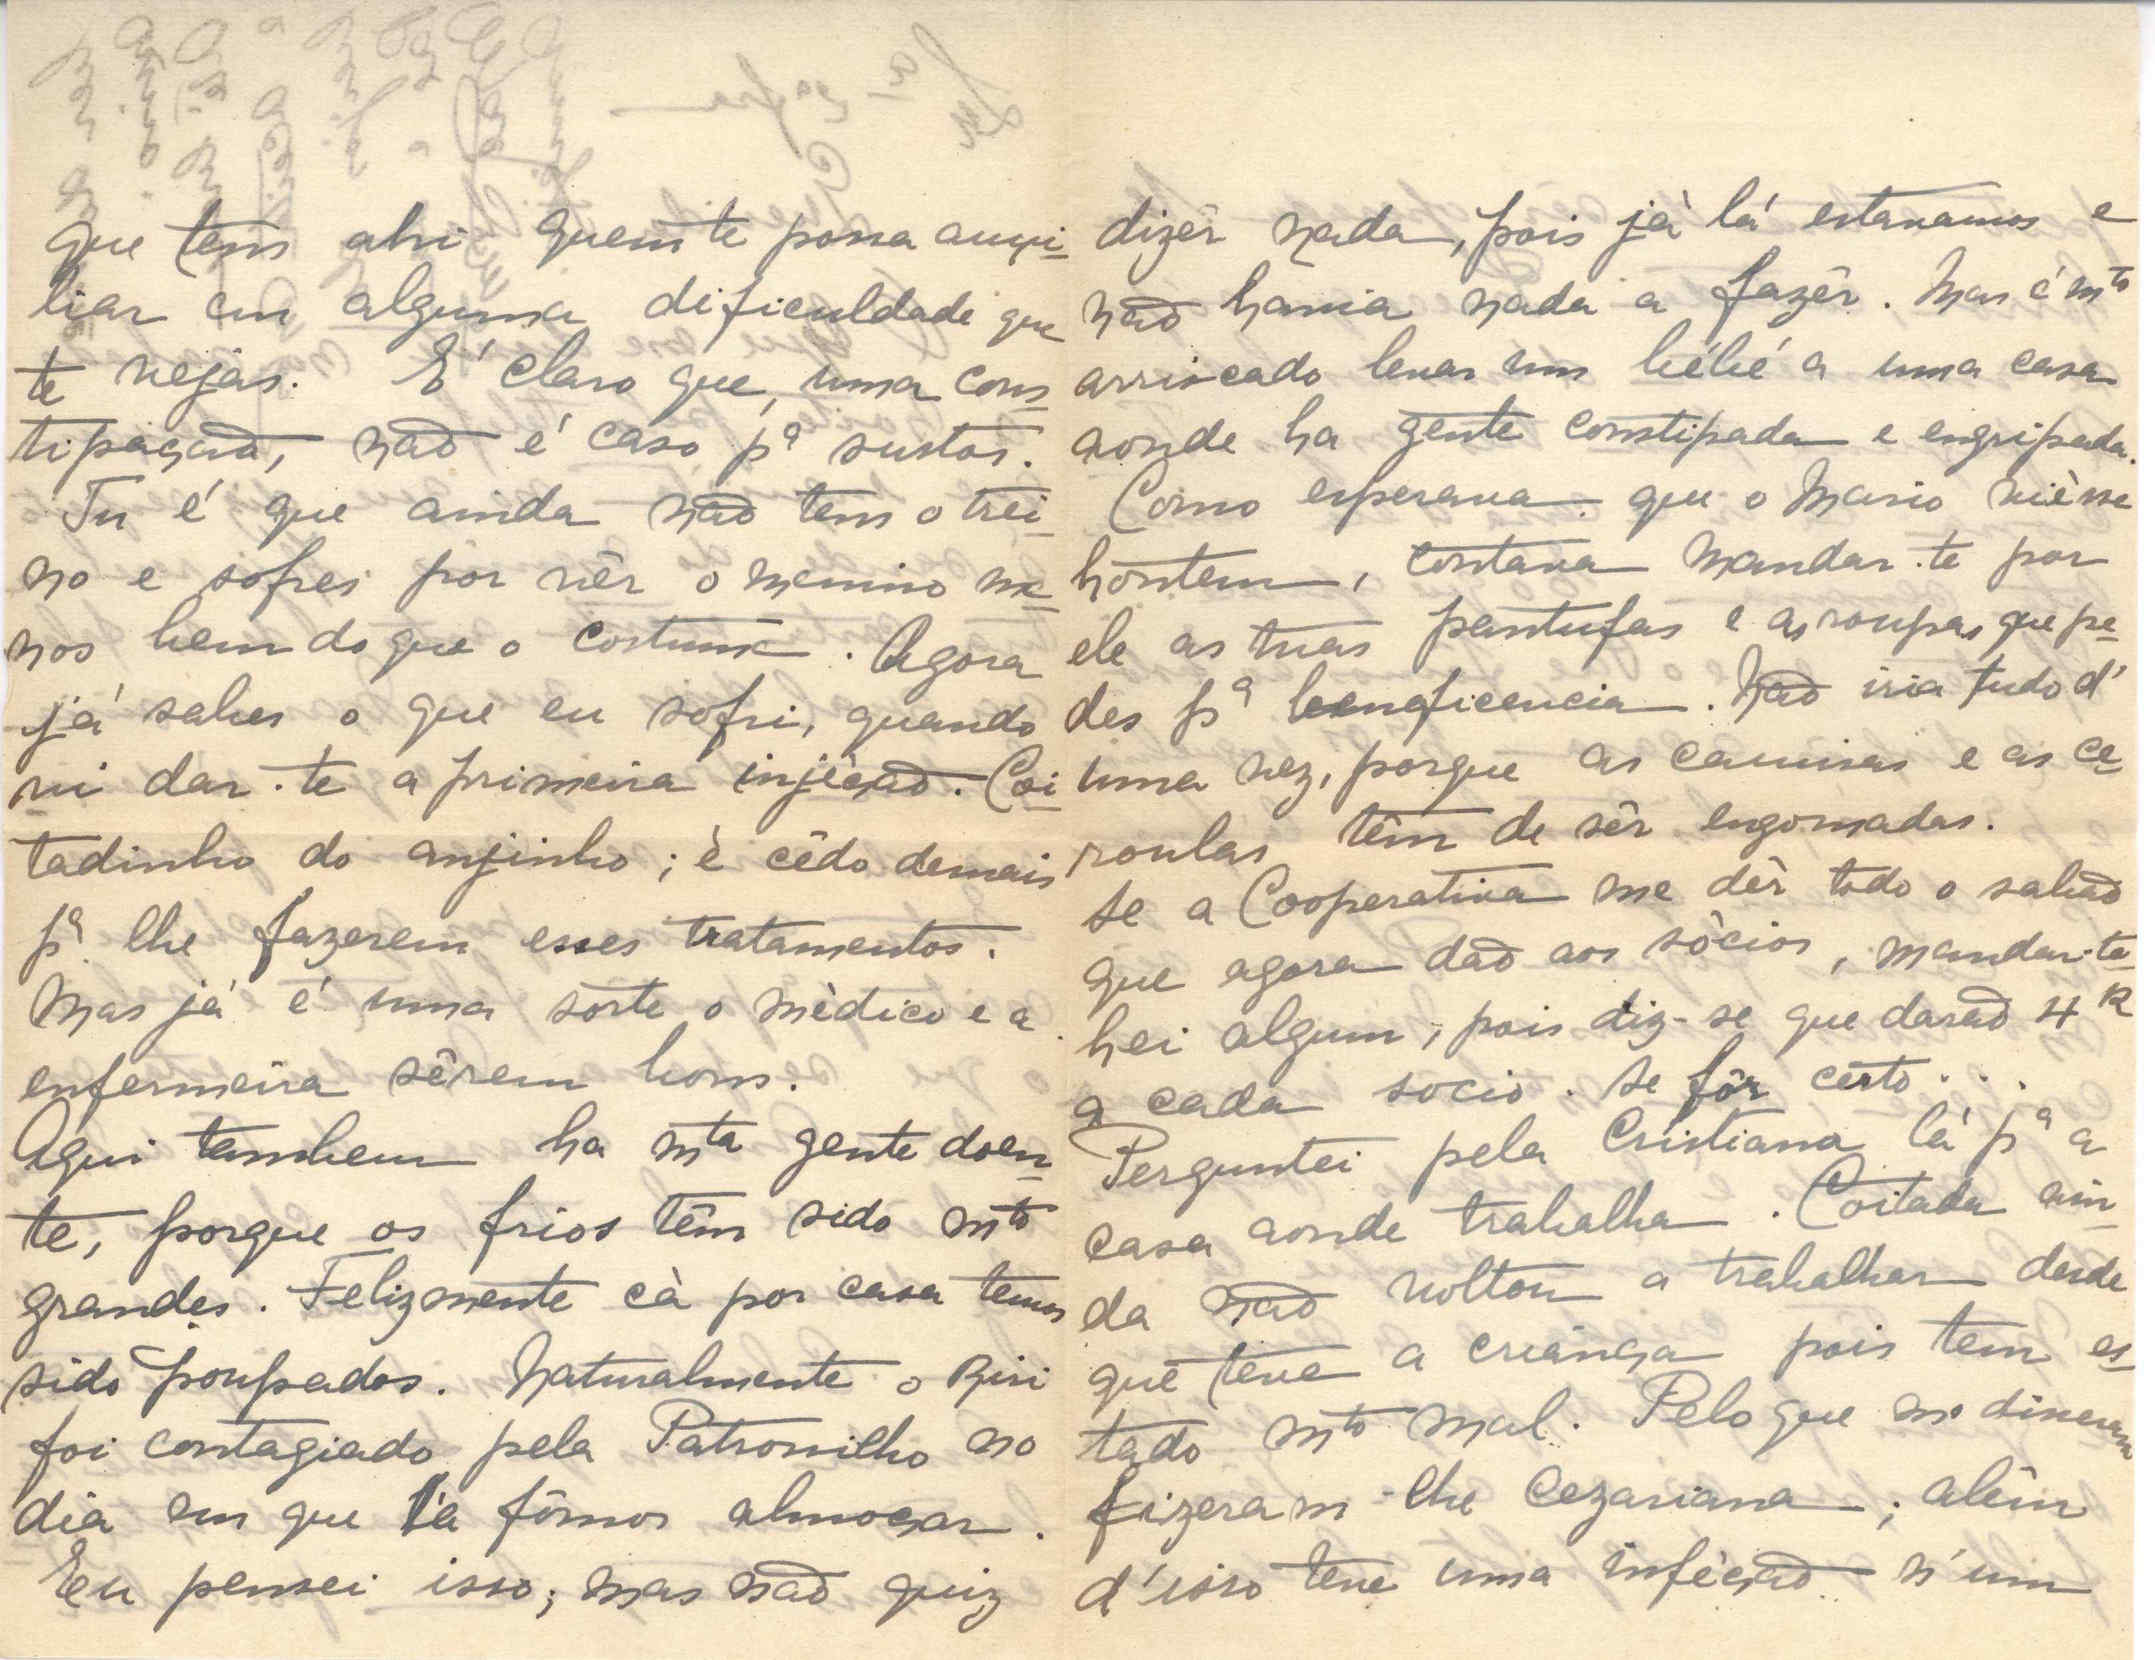 que tens ahi quem te possa auxi-
liar em alguma dificuldade que
te vejas. E' claro que, uma cons-
tipação, não é caso pª sustos.
Tu é que ainda não tens o trei-
no e sofres por vêr o menino me-
nos bem do que o costume. Agora
já sabes o que eu sofri, quando
vi dar-te a primeira injèção. Coi-
tadinho do anjinho; è cêdo demais
pª lhe fazerem esses tratamentos.
Mas já é uma sorte o mèdico e a
enfermeira sêrem bons.
Aqui tambem ha mta gente doen-
te, porque os frios têm sido mto
grandes. Felizmente cà por casa temos
sido poupados. Naturalmente o Riri
foi contagiado pela Patronilho no
dia em que lá fômos almoçar.
Eu pensei isso; mas não quiz
dizêr nada, pois jà lá estavamos e
não havia nada a fazêr. Mas é mto
arriscado levar um bébé a uma casa
aonde ha gente constipada e engripada.
Como esperava que o Mario viésse
hontem, contava mandar-te por
ele as tuas pantufas e as roupas que pe-
des pª beneficencia. Não iria tudo d'
uma vez, porque as camisas e as ce-
roulas têm de sêr engomadas.
Se a Cooperativa me dèr todo o sabão
que agora dão aos sòcios, mandar-te-
hei algum, pois diz-se que darão 4 K
a cada socio. Se fôr cérto...
Perguntei pela Cristiana lá pª a
casa aonde trabalha. Coitada ain-
da não voltou a trabalhar desde
que teve a criança pois tem es-
tado mto mal. Pelo que me disseram
fizeram-lhe Cezariana; alêm
d'isso teve uma infèção n'um